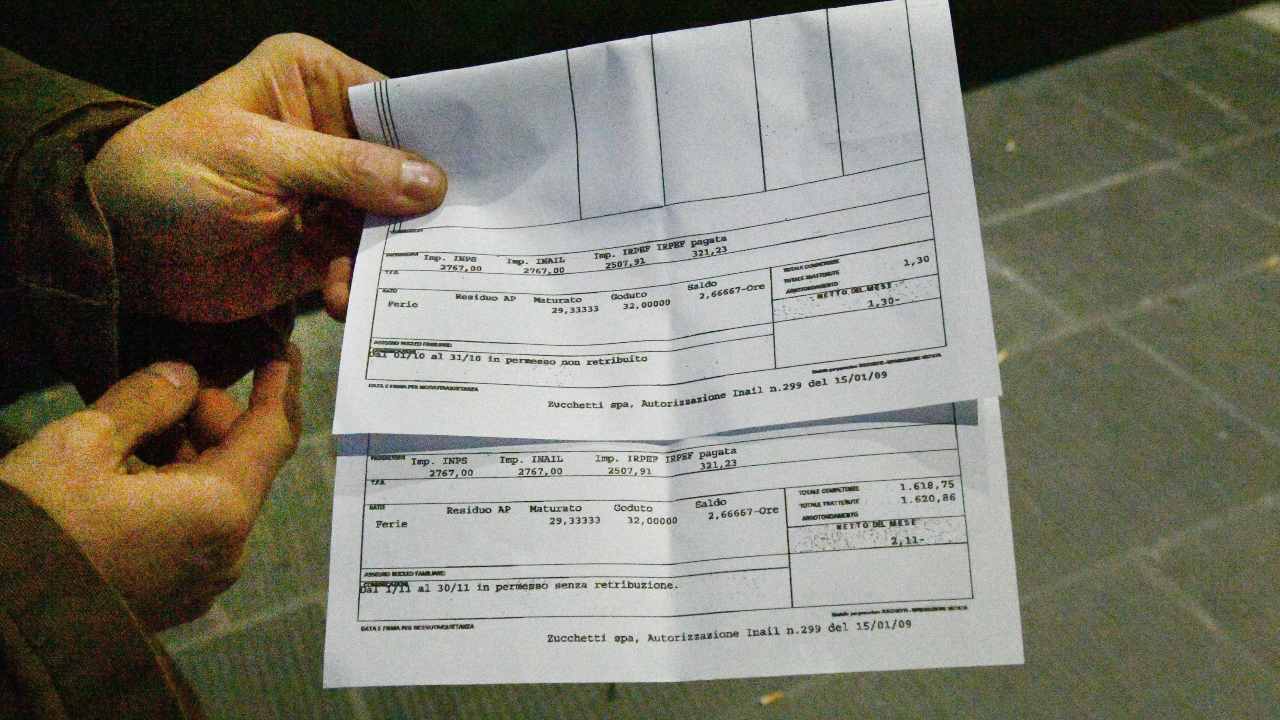 Imp. INPS Imp. INAIL Imp. IRPEF IRPEF pagata
2767,00 2767,00 2507,91 321,23
T.F.R.
RATEI Residuo AP Maturato Goduto Saldo
Ferie 29,33333 32,00000 2,66667-Ore
TOTALE COMPETENZE
TOTALE TRATTENUTE 1,30
ARROTONDAMENTO
NETTO DEL MESE
1,30-
ASSEGNO NUCLEO FAMILIARE
COMUNICAZIONI
Dal 01/10 al 31/10 in permesso non retribuito
DATA E FIRMA PER RICEVUTA/QUIETANZA
Zucchetti spa, Autorizzazione Inail n.299 del 15/01/09
Imp. INPS Imp. INAIL Imp. IRPEF IRPEF pagata
2767,00 2767,00 2507,91 321,23
T.F.R.
RATEI Residuo AP Maturato Goduto Saldo
Ferie 29,33333 32,00000 2,66667-Ore
TOTALE COMPETENZE 1.618,75
TOTALE TRATTENUTE 1.620,86
ARROTONDAMENTO
NETTO DEL MESE
2,11-
ASSEGNO NUCLEO FAMILIARE
COMUNICAZIONI
Dal 1/11 al 30/11 in permesso senza retribuzione.
DATA E FIRMA PER RICEVUTA/QUIETANZA
Zucchetti spa, Autorizzazione Inail n.299 del 15/01/09